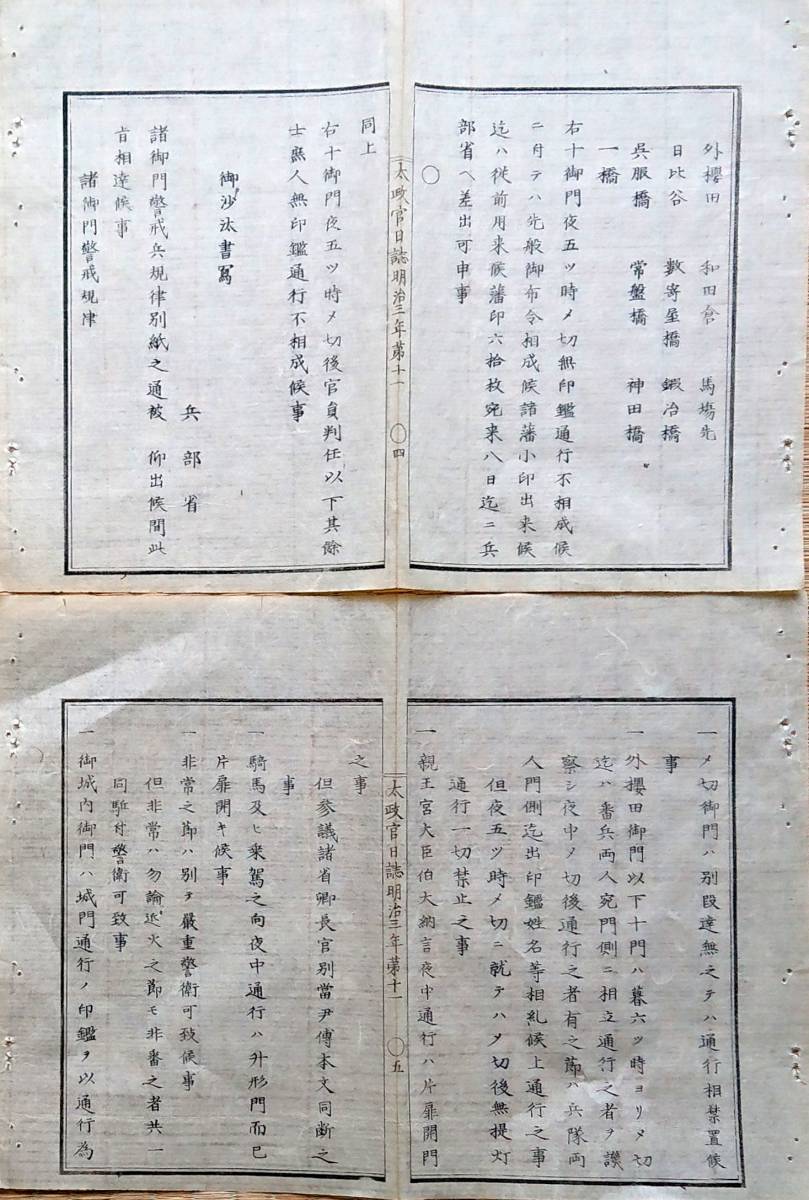 外櫻田　和田倉　馬塲先
日比谷　數寄屋橋　鍜冶橋
呉服橋　常盤橋　神田橋
一橋
右十御門夜五ツ時〆切無印鑑通行不相成候
ニ付テハ先般御布令相成候諸藩小印出来候
迄ハ従前用来候藩印六拾枚宛来八日迄ニ兵
部省ヘ差出可申事
〇
太政官日誌明治三年第十一　〇四
同上
右十御門夜五ツ時〆切後官員判任以下其餘
士庶人無印鑑通行不相成候事
御沙汰書寫
兵部省
諸御門警戒兵規律別紙之通被　仰出候間此
旨相達候事
諸御門警戒規律
一〆切御門ハ別段達無之テハ通行相禁置候
事
一外櫻田御門以下十門ハ暮六ツ時ヨリ〆切
迄ハ番兵両人宛門側ニ相立通行之者ヲ譏
察シ夜中〆切後通行之者有之節ハ兵隊両
人門側迄出印鑑姓名等相糺候上通行之事
但夜五ツ時〆切ニ就テハ〆切後無提灯
通行一切禁止之事
一親王宮大臣伯大納言夜中通行ハ片扉開門
太政官日誌明治三年第十一　〇五
之事
但參議諸省卿長官別當尹傅本文同断之
事
一騎馬及ヒ乗駕之向夜中通行ハ升形門而已
片扉開キ候事
一非常之節ハ別テ嚴重警衛可致候事
但非常ハ勿論近火之節モ非番之者共一
同駈付警衛可致事
一御城内御門ハ城門通行ノ印鑑ヲ以通行為